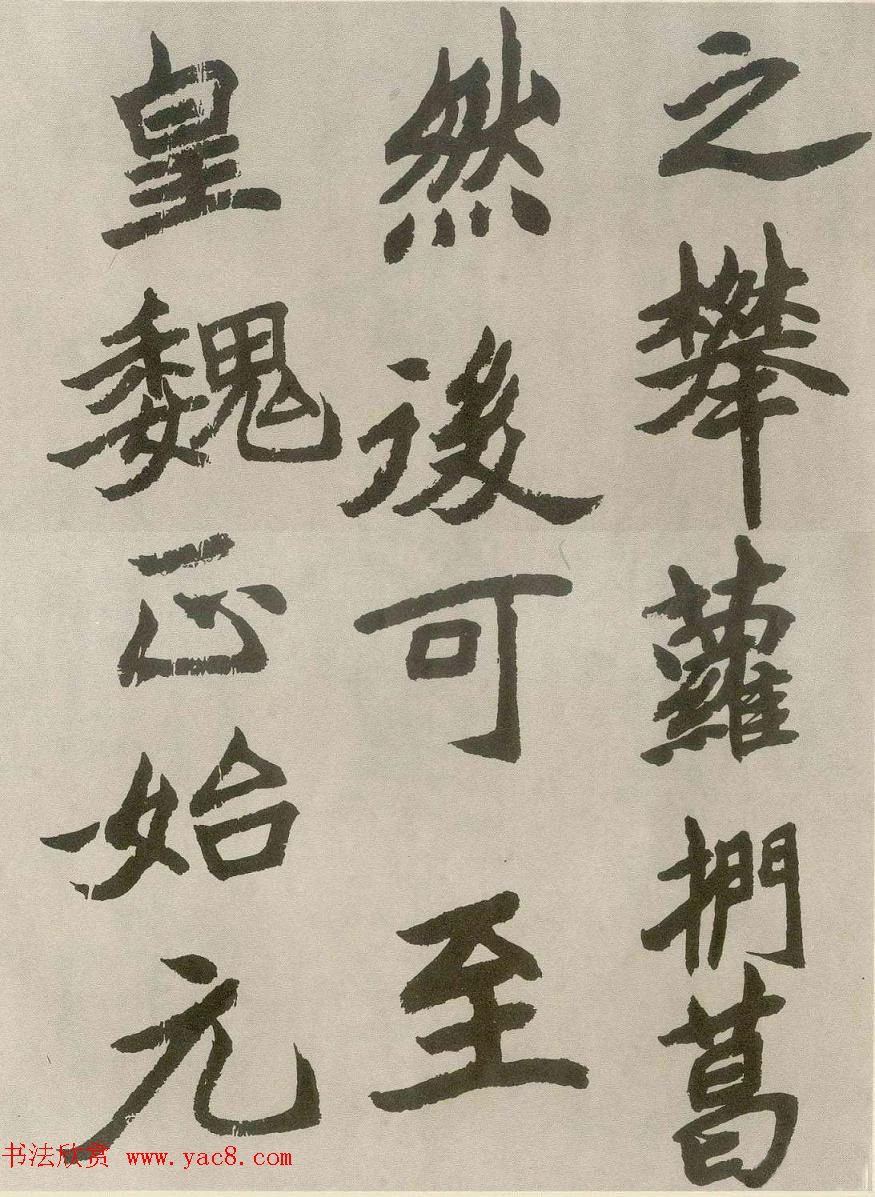 之攀蘿捫葛
然後可至
皇魏正始元
书法欣赏 www.yac8.com